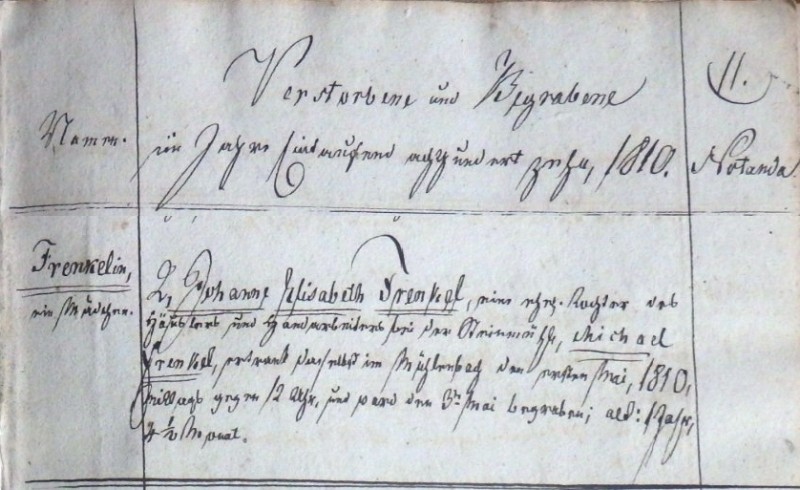 11.
Verstorbene und Begrabene
Namen.
im Jahre Eintausend achthundert zehn, 1810.
Notanda.
Frenkelin,
ein Mädchen.
2, Johanne Elisabeth Frenkel, eine ehel. Tochter des
Häuslers und Handarbeiters bei der Steinmühle, Michael
Frenkel, ertrank daselbst im Mühlenbach den ersten Mai, 1810,
Mittags gegen 12 Uhr, und ward den 3n Mai begraben; alt: 1 Jahr,
4 1/2 Monat.